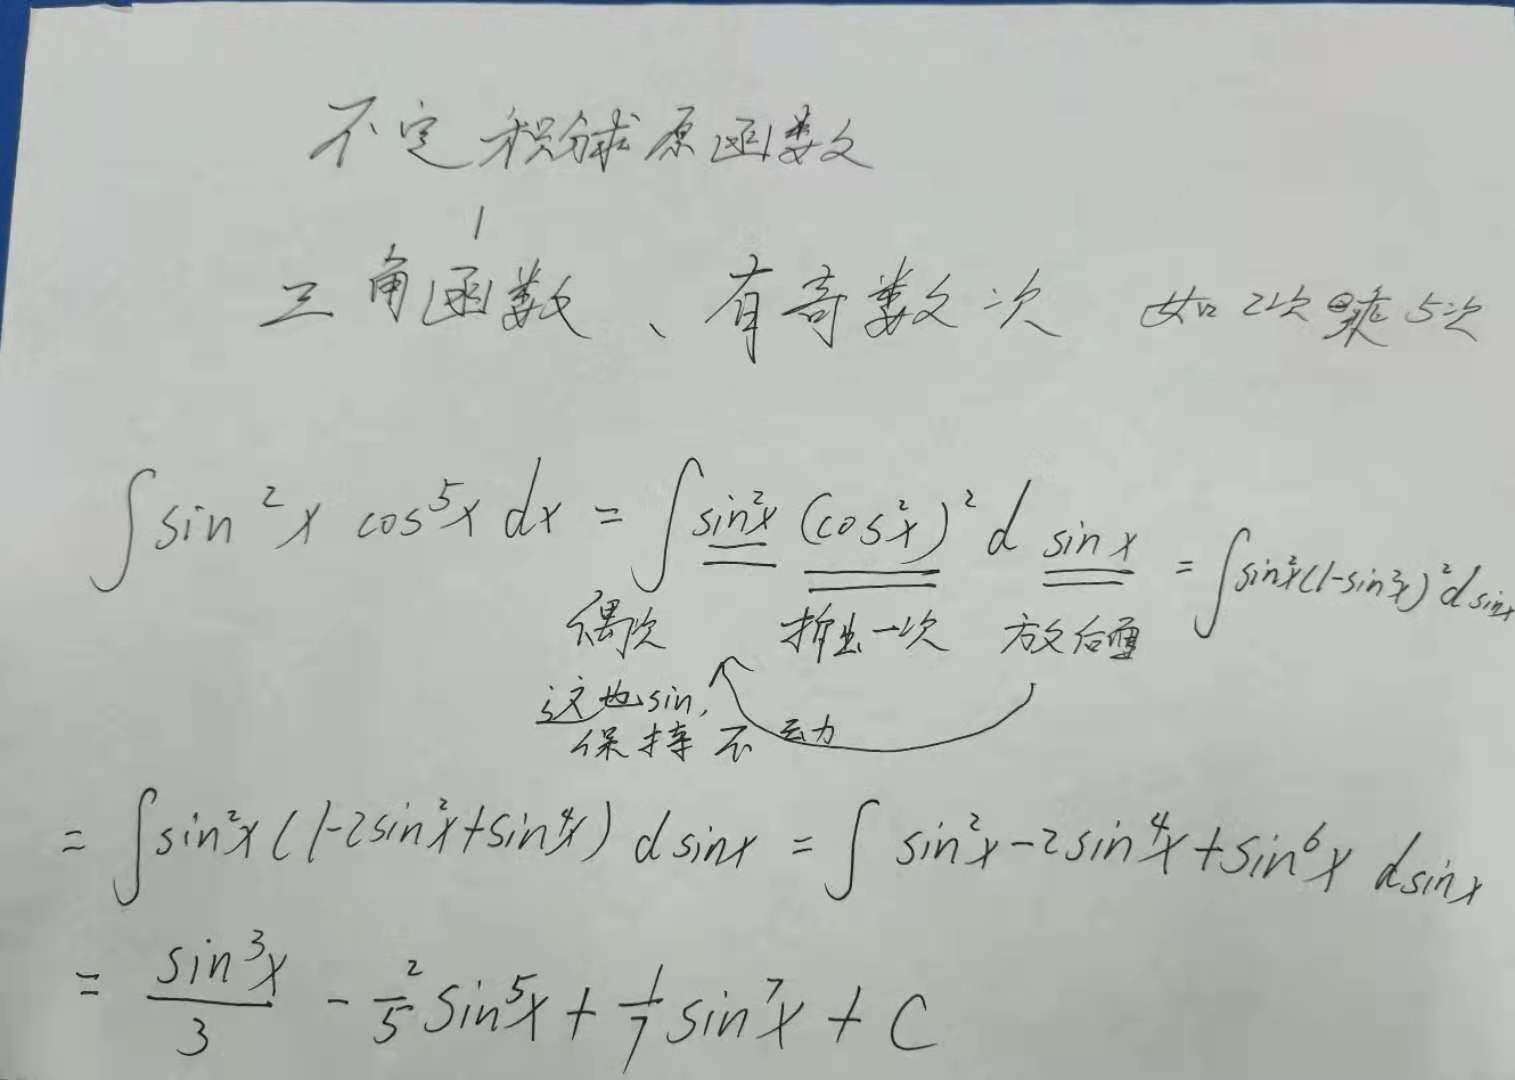 不定积分求原函数
三角函数、有奇数次 如2次乘5次
∫sin²x cos⁵x dx = ∫sin²x (cos²x)² d sin x = ∫sin²x(1-sin²x)² d sinx
偶次 拆出一次 放后面
这也sin,
保持不动
= ∫sin²x(1-2sin²x+sin⁴x) d sinx = ∫ sin²x-2sin⁴x+sin⁶x dsinx
= sin³x/3 - 2/5 sin⁵x + 1/7 sin⁷x + C